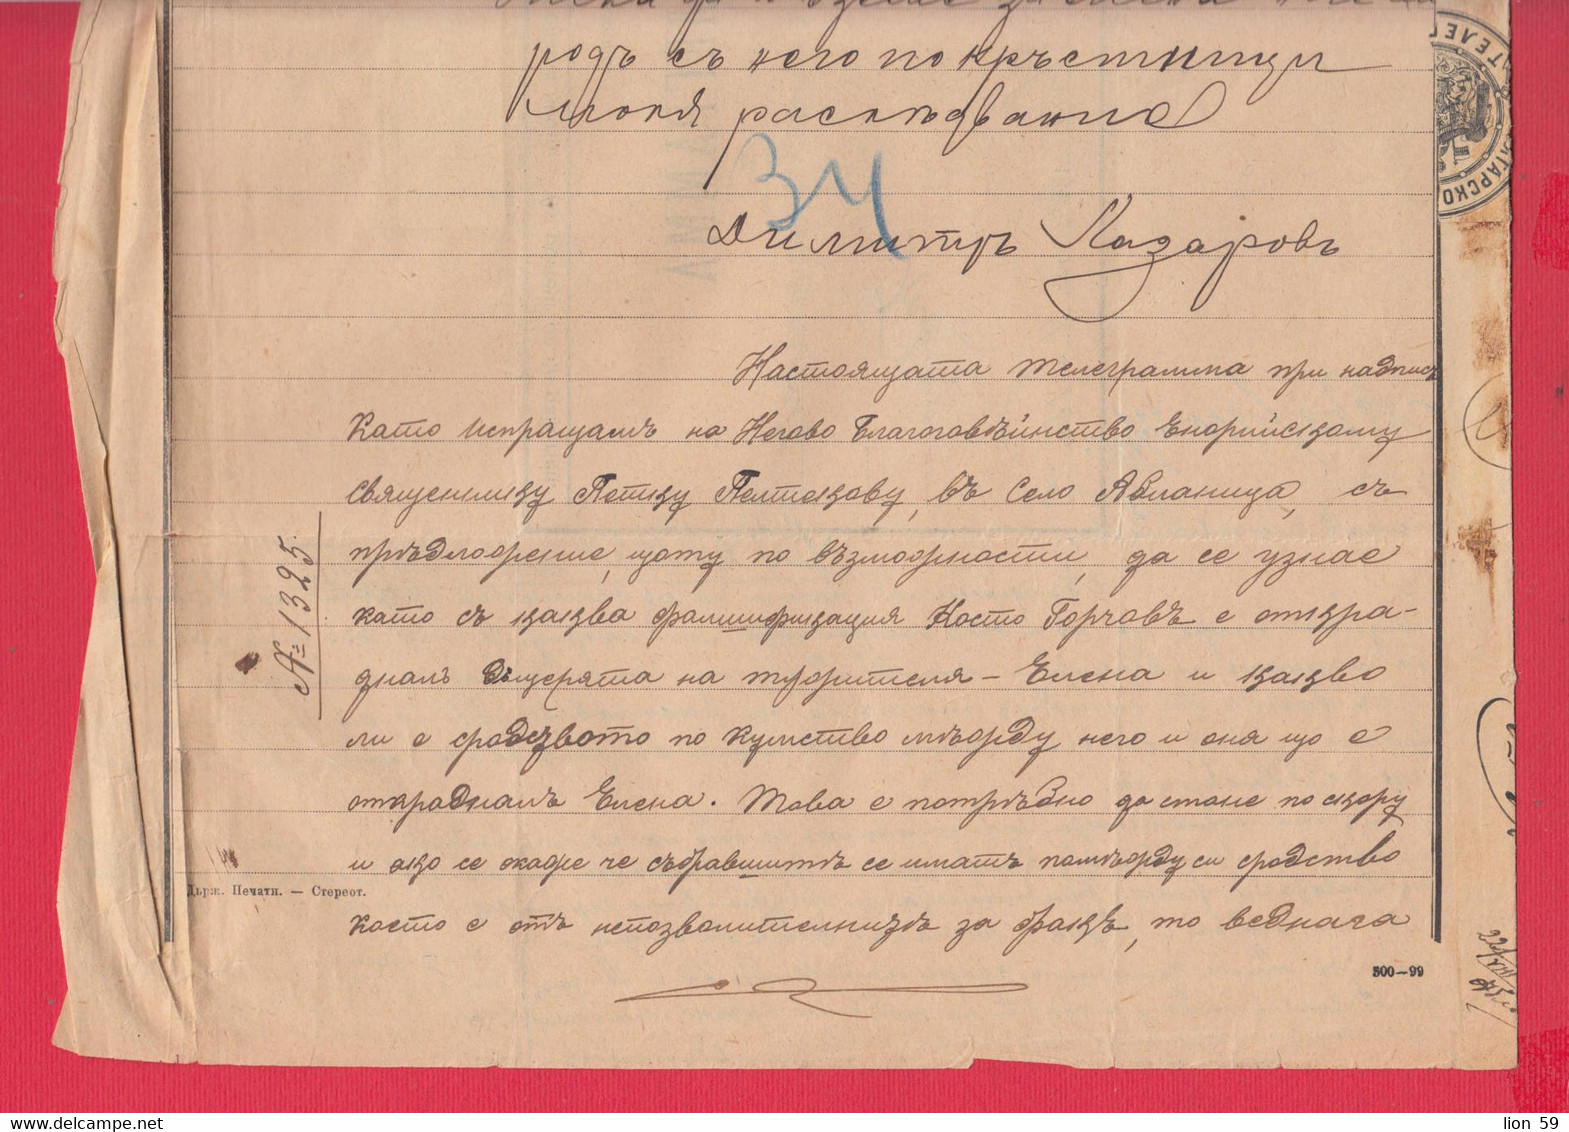 родъ съ него по кръстници
моля разслѣдвание
34
Димитръ Лазаровъ
Настоящата телеграмма при надпис
като испращамъ на Негово Благоговѣинство Енорийскому
священнику Петку Пелтекову, въ Село Абланица, съ
прѣдложение, щото по възможности, да се узнае
като съ каква фалшификация Косто Горчовъ е открад-
налъ дъщерята на тѫжителя – Елена и какво
ли е сродството по кумство между него и оня що е
откраднатъ Елена. Това е потрѣбно да стане по скору
и ако се окаже че събравшитѣ се иматъ помежду си сродство
което е отъ непозволителнитѣ за бракъ, то веднага
№ 1325.
Държ. Печатн. — Стереот.
500—99
22/VIII
lion 59